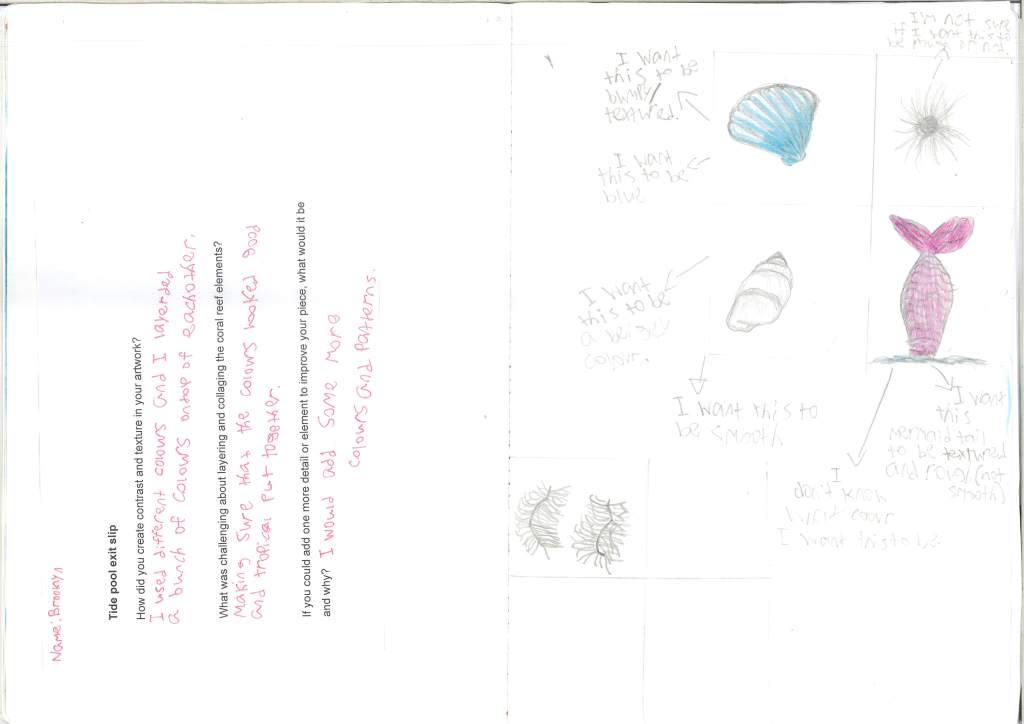 Name: Brooklyn
Tide pool exit slip
How did you create contrast and texture in your artwork?
I used different colours and I layerded
a bunch of colours ontop of eachother.
What was challenging about layering and collaging the coral reef elements?
Making sure that the colours looked good
and tropical put together.
If you could add one more detail or element to improve your piece, what would it be
and why? I would add some more
colours and patterns.
I'm not sure
if I want this to
be
I want
this to be
bumpy/
textured.
I want
this to be
blue
I want
this to be
a beige
colour.
I want this to
be smooth
I want
this
mermaid tail
to be textured
and rough (not
smooth)
I
don't know
what colour
I want this to be